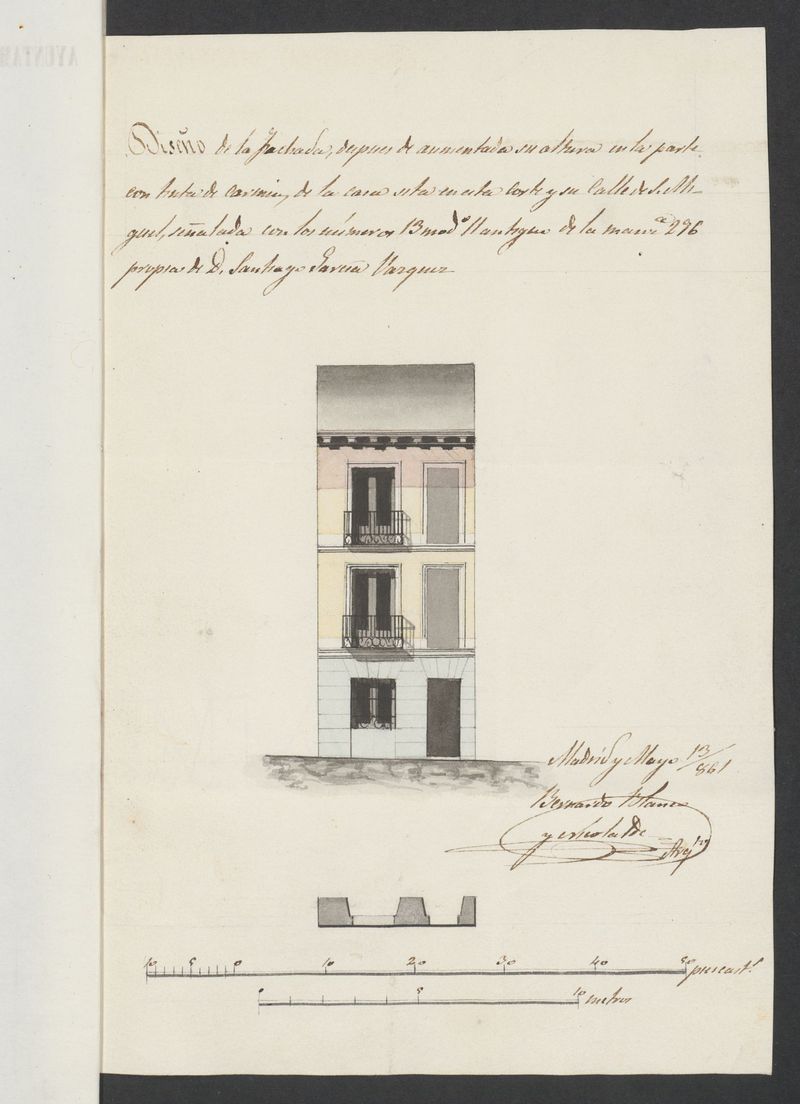 Diseño de la fachada, despues de aumentada su altura en la parte
con tinta de carmin, de la casa sita en esta corte y su Calle de S. Mi-
guel, señalada con los números 13 modº 11 antiguo de la manzª 296
propia de D. Santiago Garcia Vazquez
Madrid y Mayo 13/861
Bernardo Blanco
y
Arqto
10 5 0 10 20 30 40 50 pies cast.s
0 5 10 metros
AYUNTAM